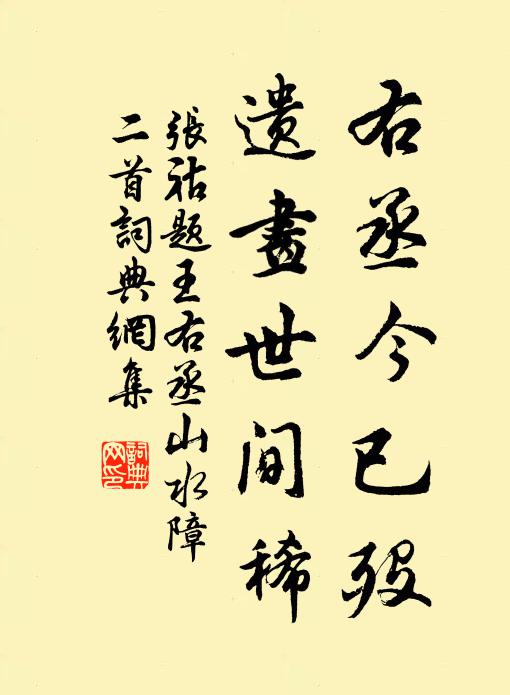 右丞今已歿
遺畫世間稀
張祜題王右丞山水障
二首詞典網集
詞典網印